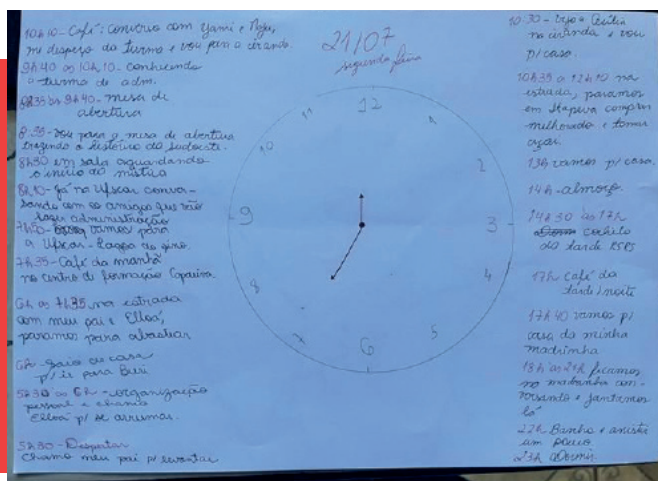 21/07
segunda feira
10h10 - Café: converso com Yami e
me despeço da turma e vou para a ciranda.
9h40 às 10h10 - conhecendo
a turma de adm.
8h35 às 9h40 - mesa de
abertura
8:35 - vou para a mesa de abertura
trazendo a história do sudoeste.
8h30 em sala aguardando
o início da mística
8h10 - Já na Ufscar conver-
sando com os amigos que vão
fazer administração
7h50 - vamos para
a Ufscar - Lagoa do sino.
7h35 - Café da manhã
no centro de formação
6h às 7h35 na estrada
com meu pai e Elloá,
paramos para abastecer
6h - Saio de casa
p/ ir para Buri
5h30 às 6h - organização
pessoal e chamo
Elloá p/ se arrumar.
5h30 - Despertar
Chamo meu pai p/ levantar
12
1
2
3
4
5
6
7
8
9
10
11
10:30 - vejo a Cecília
na ciranda e vou
p/ casa.
10h35 a 12h10 na
estrada, paramos
em Itapeva comprar
melhorado e tomar
açaí.
13h vamos p/ casa.
14h - almoço.
14h30 às 17h
cochilo
da tarde
17h café da
tarde/noite
17h40 vamos p/
casa da minha
madrinha
18h às 21h ficamos
na madrinha con-
versando e jantamos
lá
22h Banho e assisti
um pouco
23h dormir.